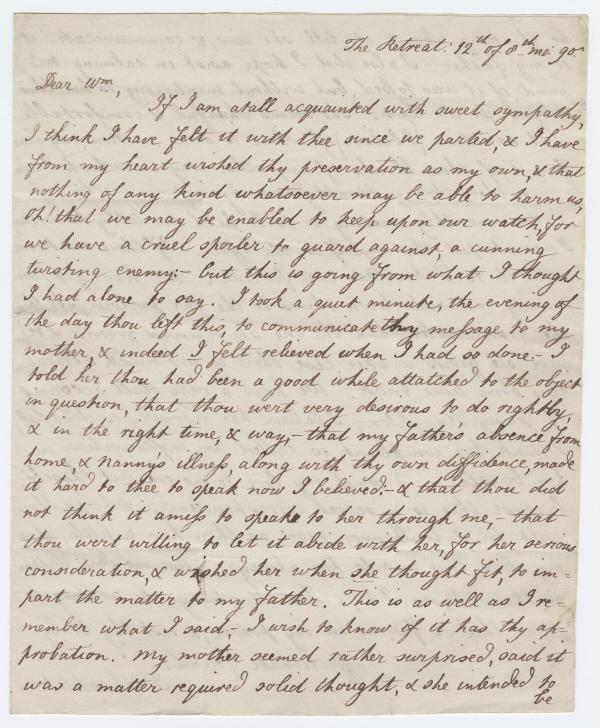 The Retreat: 12th of 8th mo: 90.
Dear Wm,
If I am atall acquainted with sweet sympathy,
I think I have felt it with thee since we parted, & I have
from my heart wished thy preservation as my own, & that
nothing of any kind whatsoever may be able to harm us,
Oh! that we may be enabled to keep upon our watch, for
we have a cruel spoiler to guard against, a cunning
twisting enemy:- but this is going from what I thought
I had alone to say. I took a quiet minute, the evening of
the day thou left this, to communicate thy message to my
mother, & indeed I felt relieved when I had so done.- I
told her thou had been a good while attatched to the object
in question, that thou wert very desirous to do rightly,
& in the right time, & way,- that my Father's absence from
home, & Nanny's illness, along with thy own diffidence, made
it hard to thee to speak now I believed;- & that thou did
not think it amiss to speak to her through me,- that
thou wert willing to let it abide with her, for her serious
consideration, & wished her when she thought fit, to im=
part the matter to my Father. This is as well as I re=
member what I said,- I wish to know if it has thy ap=
probation. My mother seemed rather surprised, said it
was a matter required solid thought, & she intended to
be